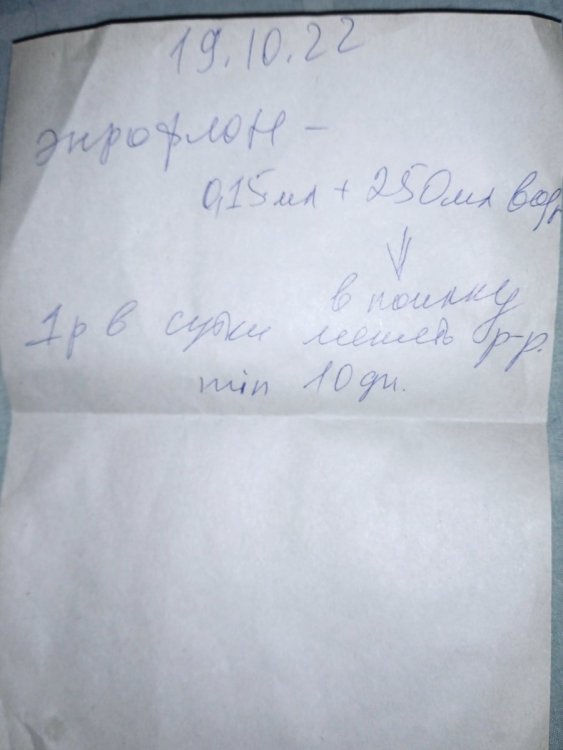 19.10.22
энрофлон –
0,15мл + 250мл воды
в поилку
1р в сутки менять р-р.
min 10дн.